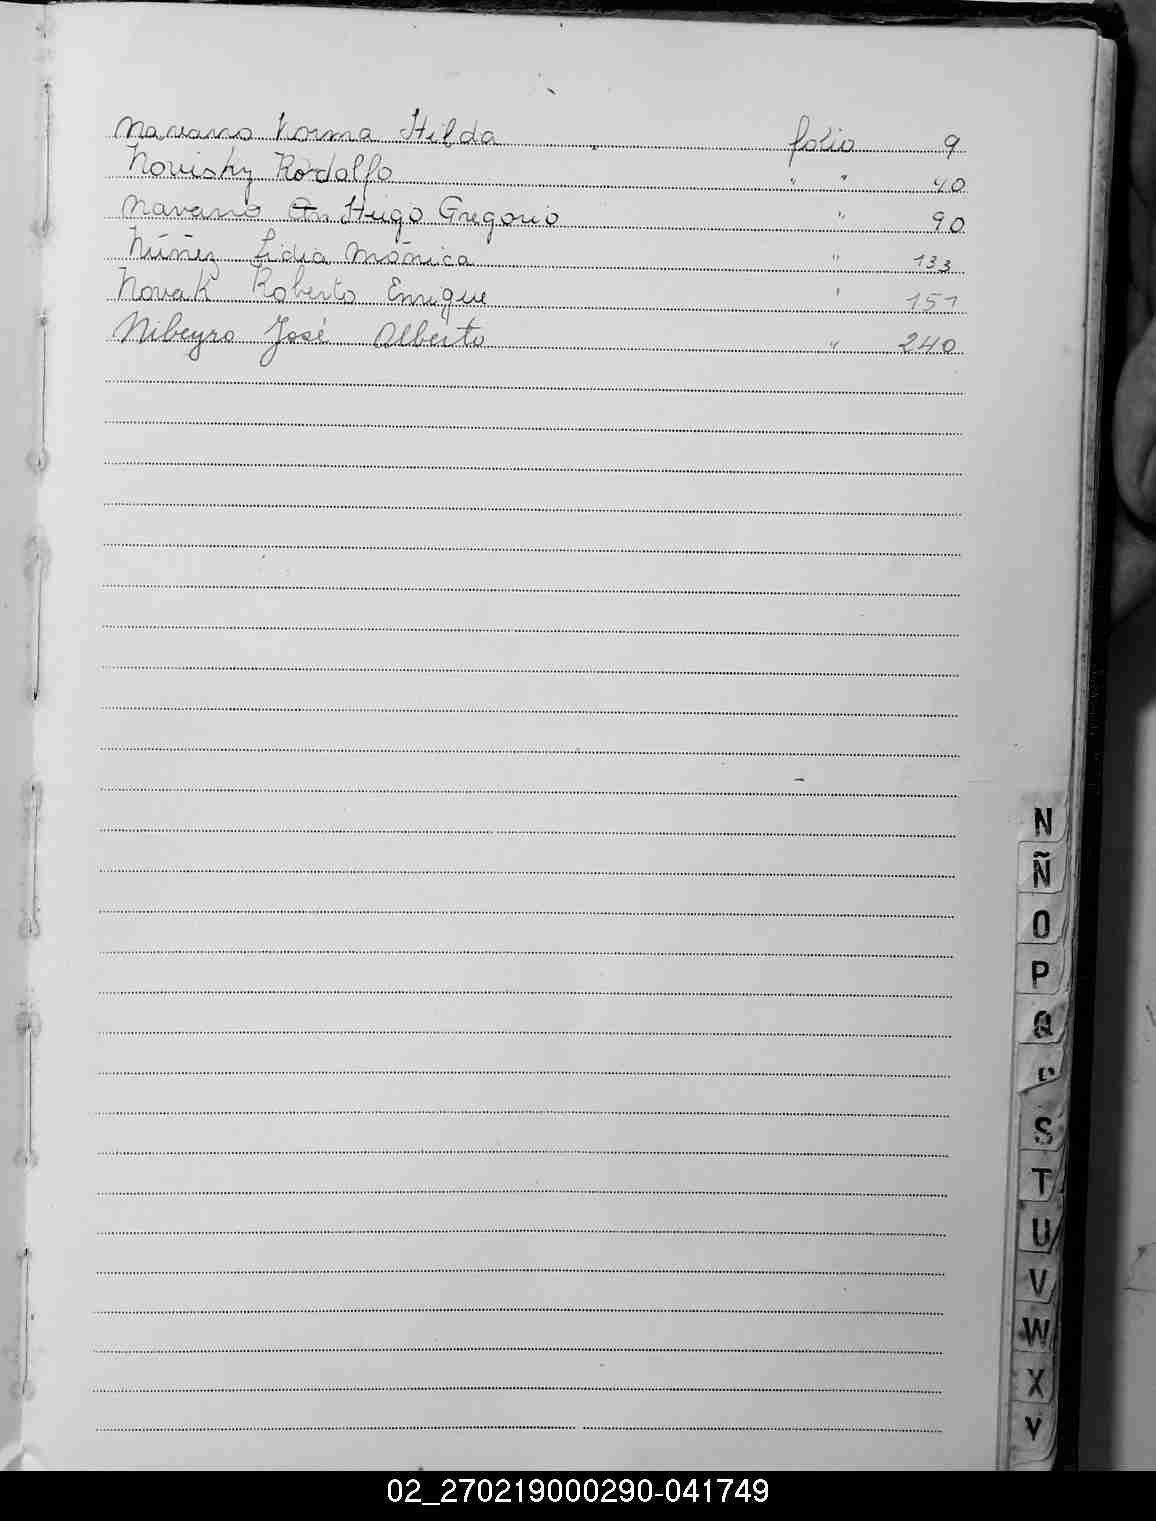 Navarro Norma Hilda folio 9
Novisky Rodolfo " " 40
Navarro Hugo Gregorio " 90
Núñez Lidia Mónica " 133
Novak Roberto Enrique " 151
Nibeyro José Alberto " 240
N
Ñ
O
P
Q
S
T
U
V
W
X
Y
02_270219000290-041749